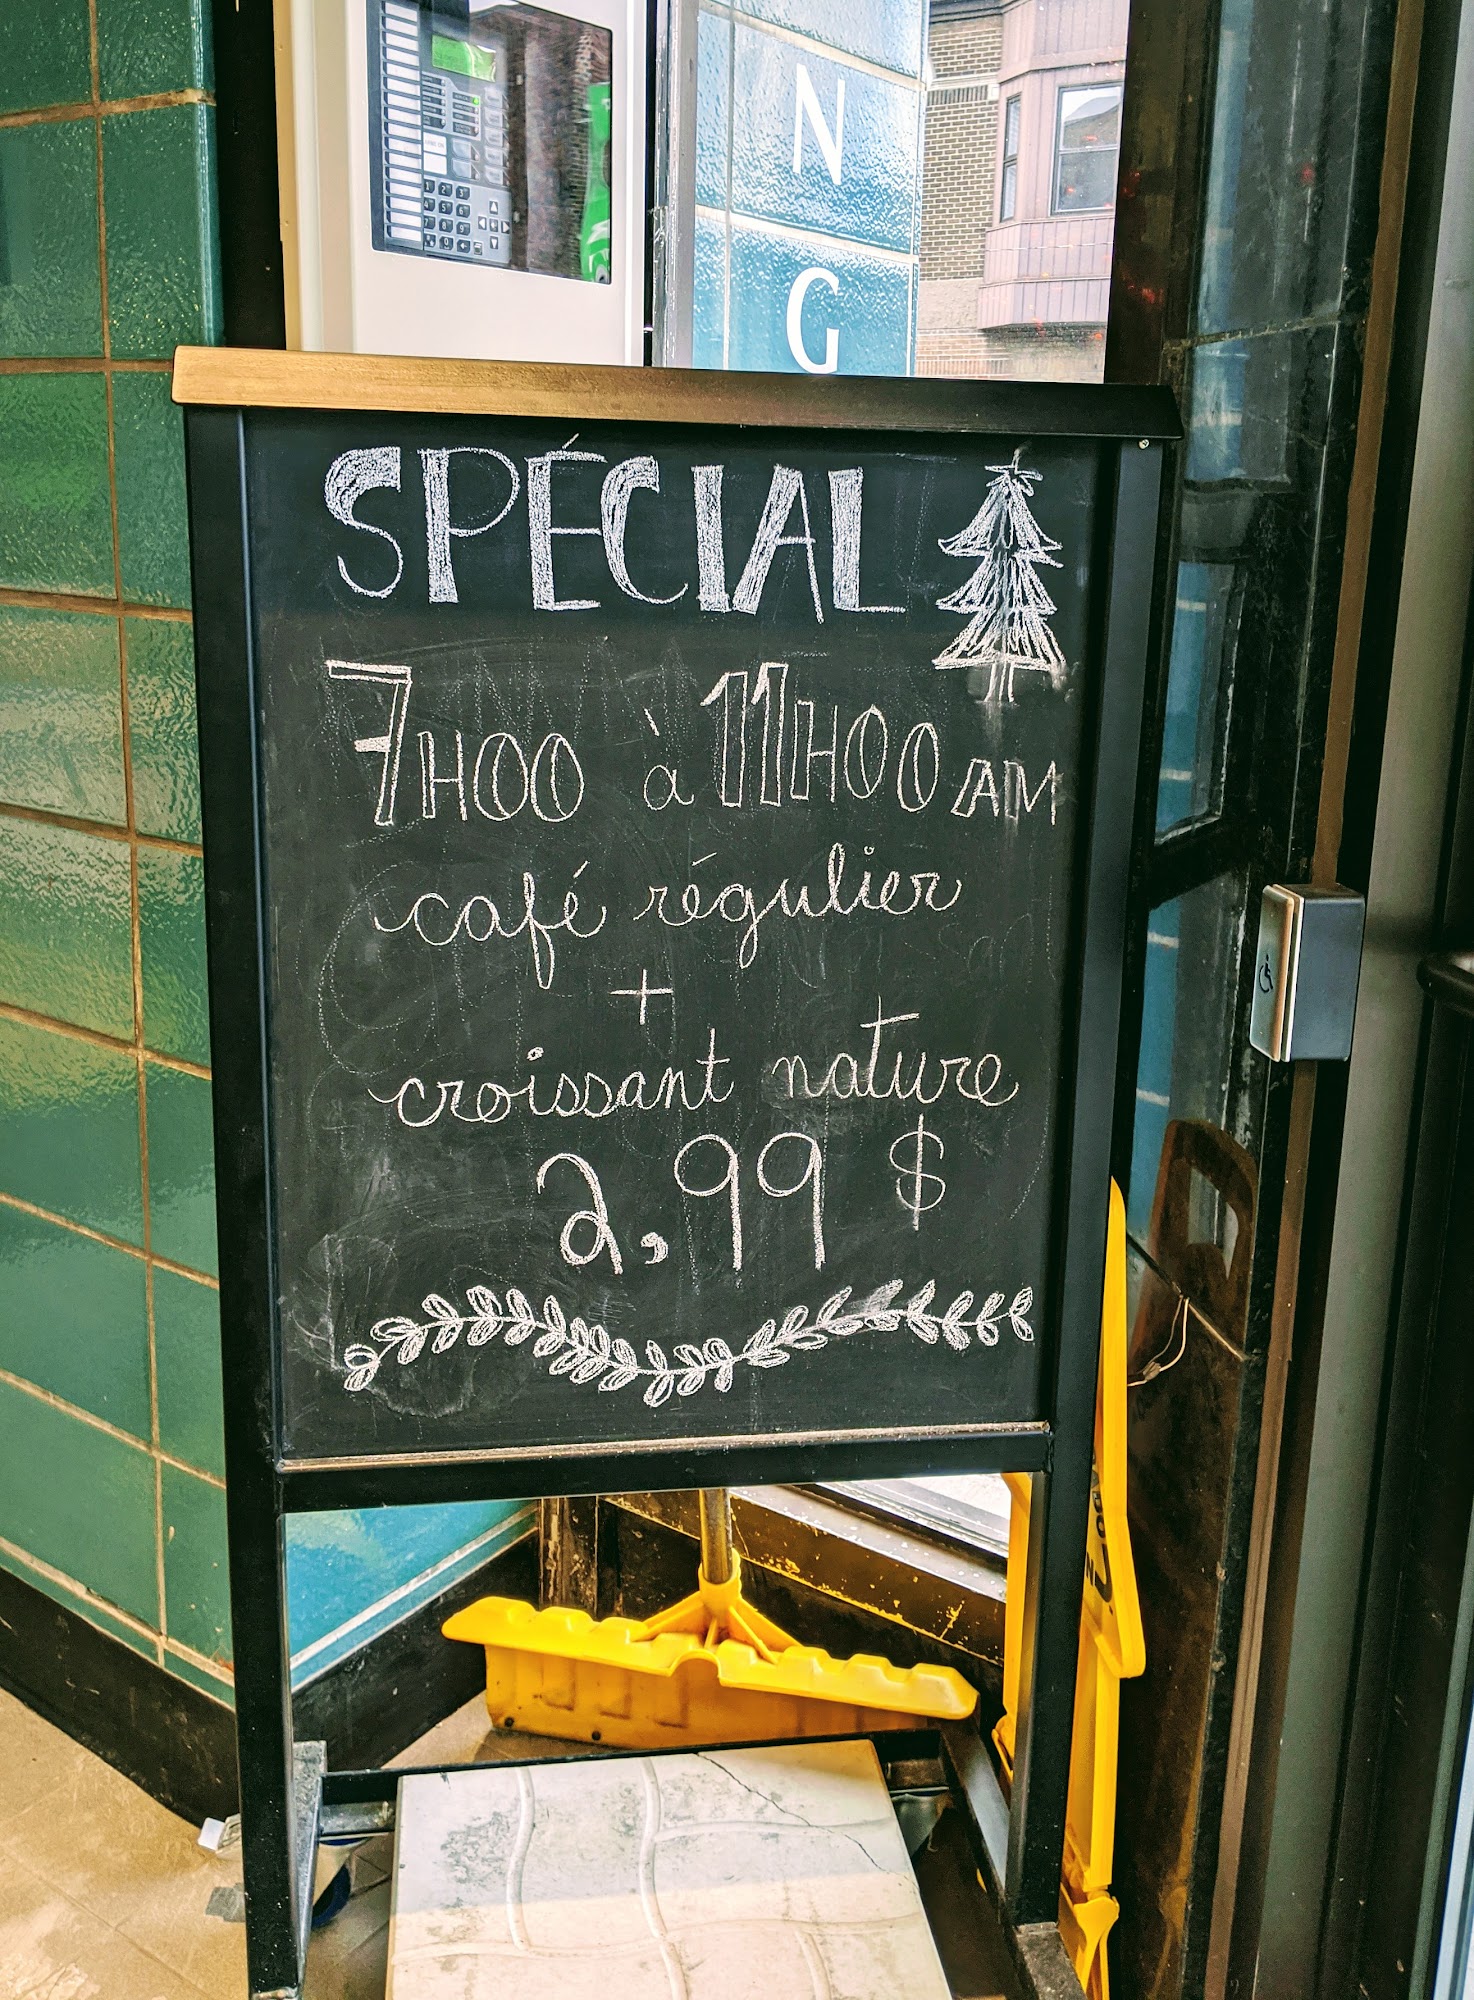 N
G
SPÉCIAL
7H00 à 11H00 AM
café régulier
+
croissant nature
2,99 $